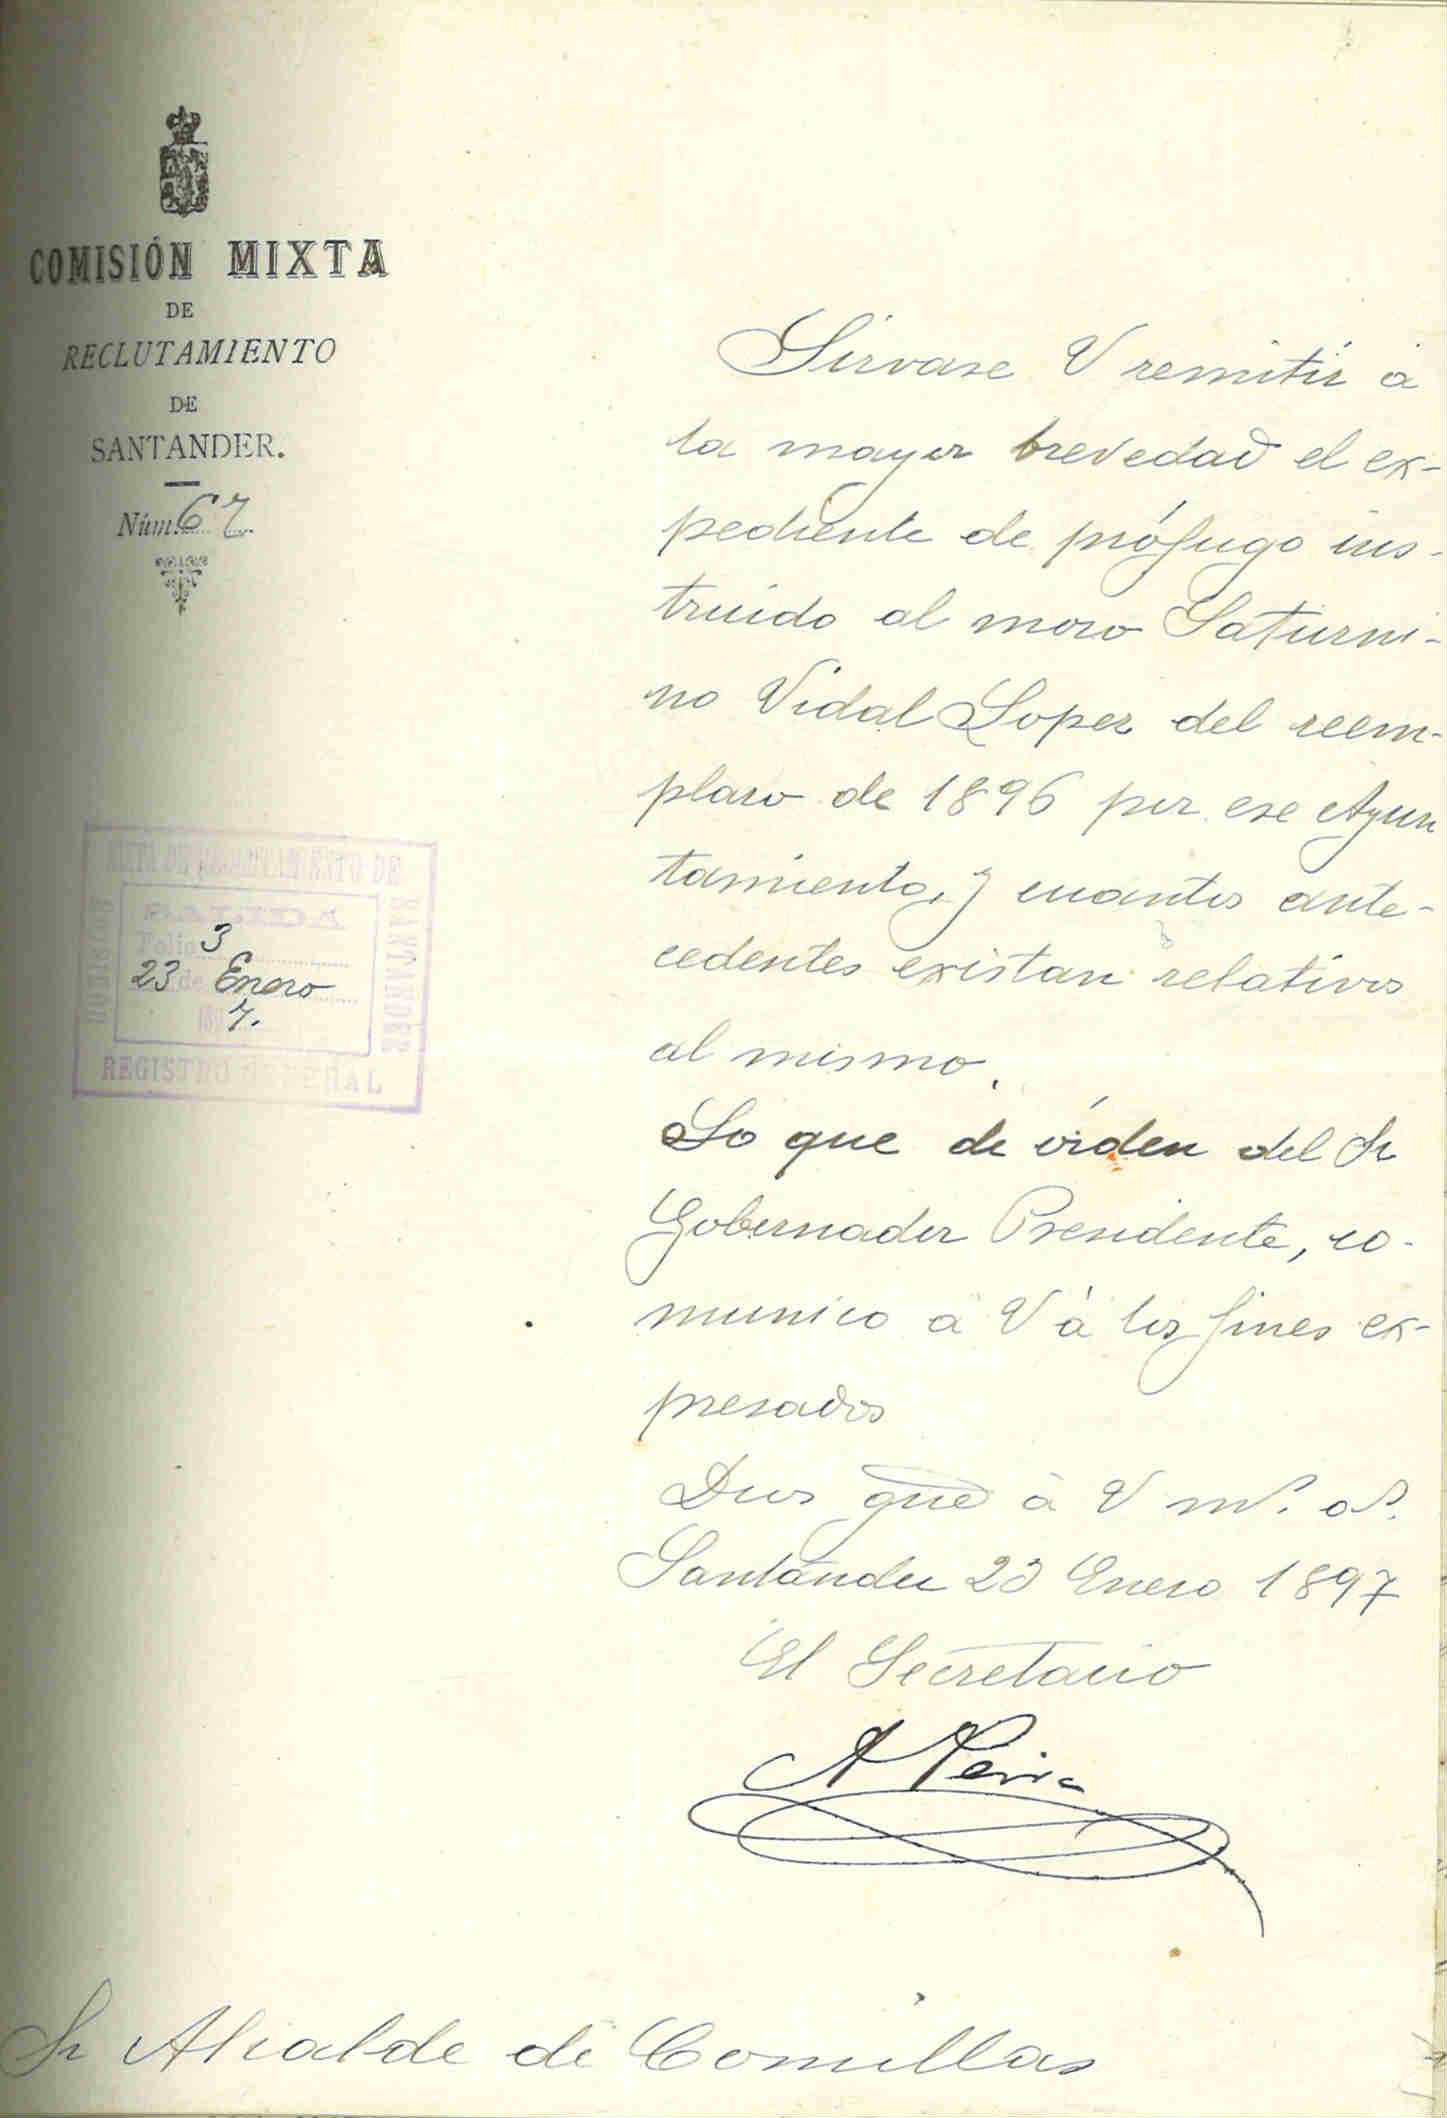 COMISIÓN MIXTA
DE
RECLUTAMIENTO
DE
SANTANDER.
Núm. 67
MIXTA DE RECLUTAMIENTO DE
SANTANDER
COMISION
Folio 3
23 de Enero
189 7.
REGISTRO GENERAL
Sirvase V remitir á
la mayor brevedad el ex-
pediente de prófugo ins-
truido al mozo Saturni-
no Vidal Lopez del reem-
plazo de 1896 por ese Ayun
tamiento, y cuantos ante-
cedentes existan relativos
al mismo.
Lo que de órden del Sr
Gobernador Presidente, co-
munico á V á los fines ex-
presados
Dios gue á V ms. as.
Santander 23 Enero 1897
El Secretario
Sr Alcalde de Comillas